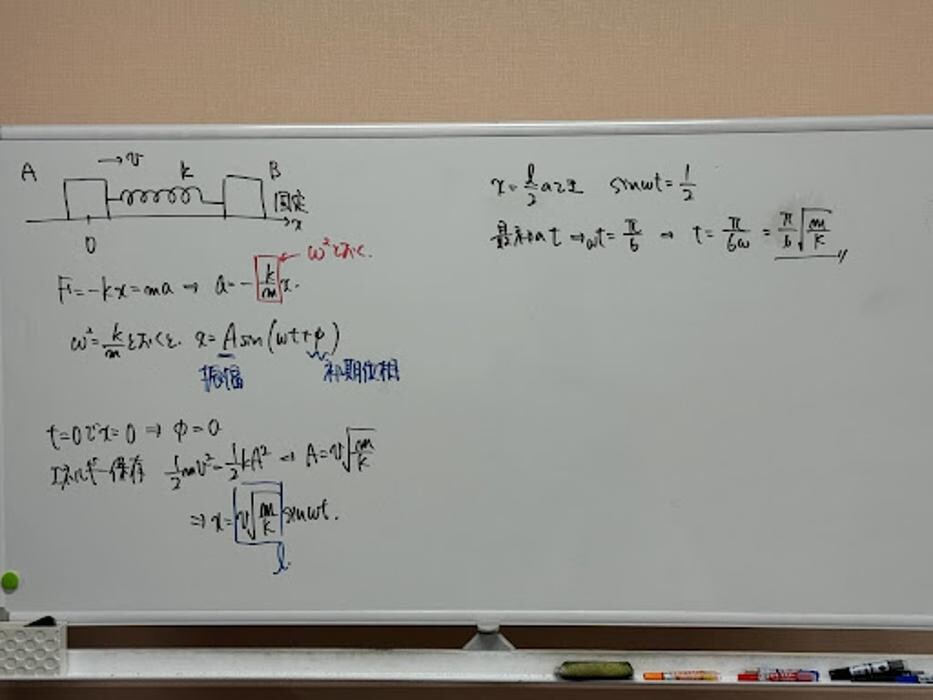 A → v k B
固定
x
0
ω²とおく.
F=-kx=ma → a=-k/m x.
ω²=k/mとおくと. x=Asin(ωt+φ)
振幅 初期位相
t=0でx=0 ⇒ φ=0
エネルギー保存 1/2mv²=1/2kA² → A=v√m/k
⇒ x=v√m/k sinωt.
l
x=l/2のとき sinωt=1/2
最初のt →ωt=π/6 → t=π/6ω=π/6√m/k